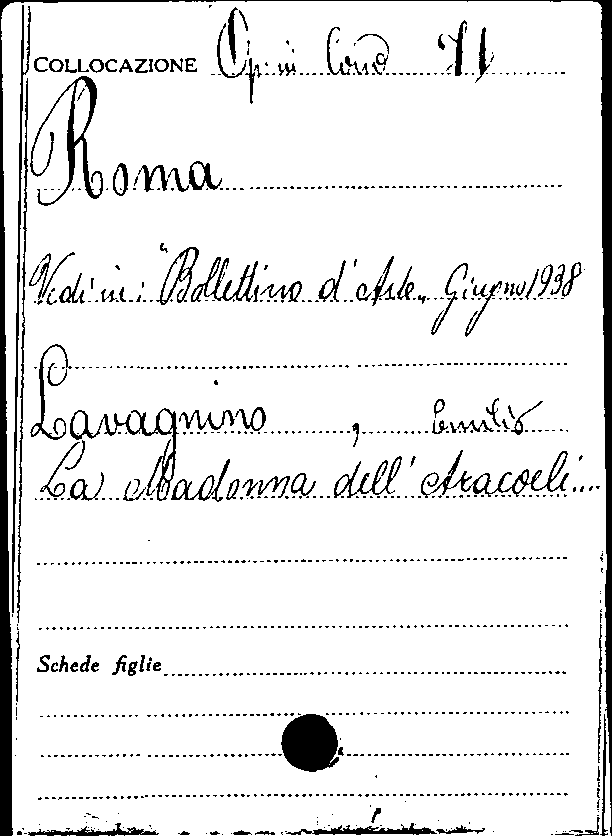 COLLOCAZIONE Op. in Cons 71
Roma
Vedi in: "Bollettino d'Arte„ Giugno 1938
Lavagnino, Emilio
La Madonna dell'Aracoeli....
Schede figlie